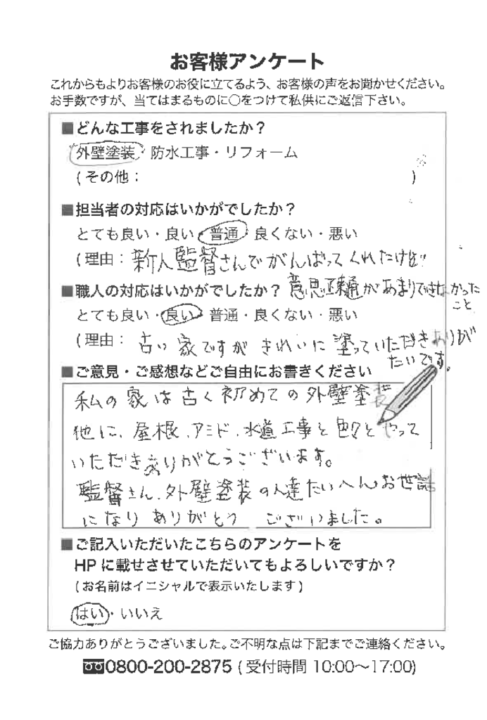 お客様アンケート
これからもよりお客様のお役に立てるよう、お客様の声をお聞かせください。
お手数ですが、当てはまるものに○をつけて私供にご返信下さい。
■どんな工事をされましたか？
外壁塗装・防水工事・リフォーム
(その他： )
■担当者の対応はいかがでしたか？
とても良い・良い・普通・良くない・悪い
(理由：新人監督さんでがんばってくれたけど
意思疎通があまりできなかった
こと
■職人の対応はいかがでしたか？
とても良い・良い・普通・良くない・悪い
(理由：古い家ですがきれいに塗っていただきありが
たいです。
■ご意見・ご感想などご自由にお書きください
私の家は古く初めての外壁塗装
他に、屋根、アミド、水道工事と色々とやって
いただきありがとうございます。
監督さん、外壁塗装の人達たいへんお世話
になりありがとうございました。
■ご記入いただいたこちらのアンケートを
HPに載せさせていただいてもよろしいですか？
(お名前はイニシャルで表示いたします)
はい・いいえ
ご協力ありがとうございました。ご不明な点は下記までご連絡ください。
0800-200-2875 (受付時間 10:00～17:00)